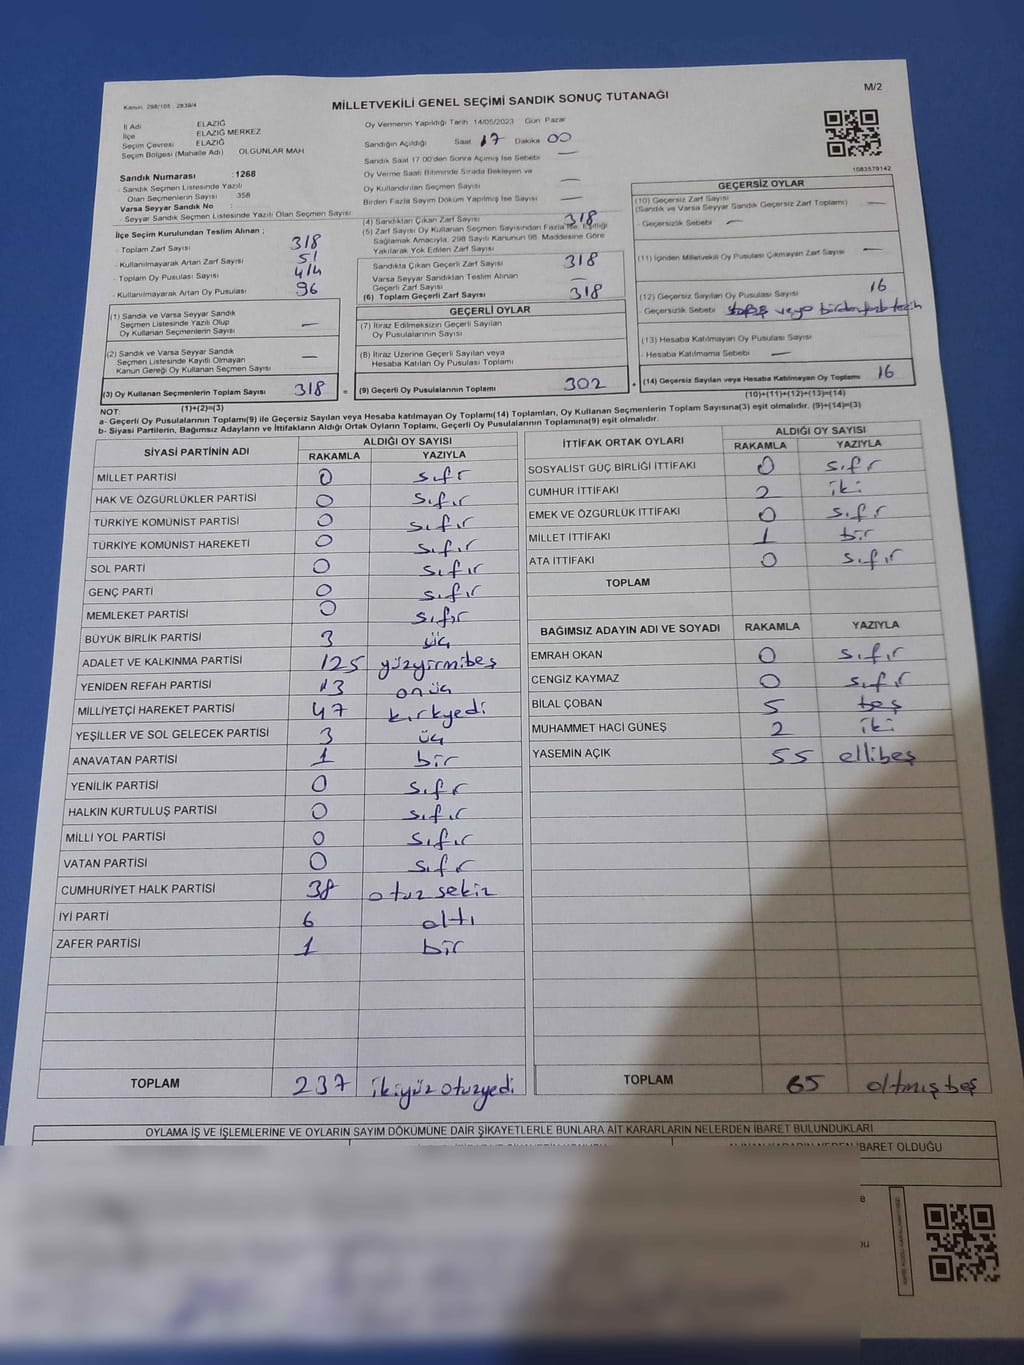 Kanun: 298/105 2839/4
MİLLETVEKİLİ GENEL SEÇİMİ SANDIK SONUÇ TUTANAĞI
M/2
İl Adı ELAZIĞ
İlçe ELAZIĞ MERKEZ
Seçim Çevresi ELAZIĞ
Seçim Bölgesi (Mahalle Adı) OLGUNLAR MAH
Sandık Numarası : 1268
- Sandık Seçmen Listesinde Yazılı
Olan Seçmenlerin Sayısı : 358
Varsa Seyyar Sandık No :
- Seyyar Sandık Seçmen Listesinde Yazılı Olan Seçmen Sayısı
İlçe Seçim Kurulundan Teslim Alınan ;
- Toplam Zarf Sayısı 318
- Kullanılmayarak Artan Zarf Sayısı 51
- Toplam Oy Pusulası Sayısı 414
- Kullanılmayarak Artan Oy Pusulası 96
(1) Sandık ve Varsa Seyyar Sandık
Seçmen Listesinde Yazılı Olup
Oy Kullanan Seçmenlerin Sayısı —
(2) Sandık ve Varsa Seyyar Sandık
Seçmen Listesinde Kayıtlı Olmayan
Kanun Gereği Oy Kullanan Seçmen Sayısı —
(3) Oy Kullanan Seçmenlerin Toplam Sayısı 318 =
(1)+(2)=(3)
Oy Vermenin Yapıldığı Tarih 14/05/2023 Gün Pazar
Sandığın Açıldığı Saat 17 Dakika 00
Sandık Saat 17.00'den Sonra Açılmış İse Sebebi —
Oy Verme Saati Bitiminde Sırada Bekleyen ve
Oy Kullandırılan Seçmen Sayısı —
Birden Fazla Sayım Döküm Yapılmış İse Sayısı —
(4) Sandıktan Çıkan Zarf Sayısı 318
(5) Zarf Sayısı Oy Kullanan Seçmen Sayısından Fazla İse, Eşitliği
Sağlamak Amacıyla, 298 Sayılı Kanunun 98. Maddesine Göre
Yakılarak Yok Edilen Zarf Sayısı
Sandıkta Çıkan Geçerli Zarf Sayısı 318
Varsa Seyyar Sandıktan Teslim Alınan
Geçerli Zarf Sayısı —
(6) Toplam Geçerli Zarf Sayısı 318
GEÇERLİ OYLAR
(7) İtiraz Edilmeksizin Geçerli Sayılan
Oy Pusulalarının Sayısı
(8) İtiraz Üzerine Geçerli Sayılan veya
Hesaba Katılan Oy Pusulası Toplamı
(9) Geçerli Oy Pusulalarının Toplamı 302 +
1083579142
GEÇERSİZ OYLAR
(10) Geçersiz Zarf Sayısı
(Sandık ve Varsa Seyyar Sandık Geçersiz Zarf Toplamı) —
- Geçersizlik Sebebi —
(11) İçinden Milletvekili Oy Pusulası Çıkmayan Zarf Sayısı —
(12) Geçersiz Sayılan Oy Pusulası Sayısı 16
Geçersizlik Sebebi veya
(13) Hesaba Katılmayan Oy Pusulası Sayısı
Hesaba Katılmama Sebebi —
(14) Geçersiz Sayılan veya Hesaba Katılmayan Oy Toplamı 16
(10)+(11)+(12)+(13)=(14)
NOT:
a- Geçerli Oy Pusulalarının Toplamı(9) ile Geçersiz Sayılan veya Hesaba katılmayan Oy Toplamı(14) Toplamları, Oy Kullanan Seçmenlerin Toplam Sayısına(3) eşit olmalıdır. (9)+(14)=(3)
b- Siyasi Partilerin, Bağımsız Adayların ve İttifakların Aldığı Ortak Oyların Toplamı, Geçerli Oy Pusulalarının Toplamına(9) eşit olmalıdır.
SİYASİ PARTİNİN ADI ALDIĞI OY SAYISI
RAKAMLA YAZIYLA
MİLLET PARTİSİ 0 sıfır
HAK VE ÖZGÜRLÜKLER PARTİSİ 0 sıfır
TÜRKİYE KOMÜNİST PARTİSİ 0 sıfır
TÜRKİYE KOMÜNİST HAREKETİ 0 sıfır
SOL PARTİ 0 sıfır
GENÇ PARTİ 0 sıfır
MEMLEKET PARTİSİ 0 sıfır
BÜYÜK BİRLİK PARTİSİ 3 üç
ADALET VE KALKINMA PARTİSİ 125 yüzyirmibeş
YENİDEN REFAH PARTİSİ 13 onüç
MİLLİYETÇİ HAREKET PARTİSİ 47 kırkyedi
YEŞİLLER VE SOL GELECEK PARTİSİ 3 üç
ANAVATAN PARTİSİ 1 bir
YENİLİK PARTİSİ 0 sıfır
HALKIN KURTULUŞ PARTİSİ 0 sıfır
MİLLİ YOL PARTİSİ 0 sıfır
VATAN PARTİSİ 0 sıfır
CUMHURİYET HALK PARTİSİ 38 otuz sekiz
İYİ PARTİ 6 altı
ZAFER PARTİSİ 1 bir
TOPLAM 237 ikiyüz otuzyedi
İTTİFAK ORTAK OYLARI ALDIĞI OY SAYISI
RAKAMLA YAZIYLA
SOSYALİST GÜÇ BİRLİĞİ İTTİFAKI 0 sıfır
CUMHUR İTTİFAKI 2 iki
EMEK VE ÖZGÜRLÜK İTTİFAKI 0 sıfır
MİLLET İTTİFAKI 1 bir
ATA İTTİFAKI 0 sıfır
TOPLAM
BAĞIMSIZ ADAYIN ADI VE SOYADI RAKAMLA YAZIYLA
EMRAH OKAN 0 sıfır
CENGİZ KAYMAZ 0 sıfır
BİLAL ÇOBAN 5 beş
MUHAMMET HACI GÜNEŞ 2 iki
YASEMİN AÇIK 55 ellibeş
TOPLAM 65 altmış beş
OYLAMA İŞ VE İŞLEMLERİNE VE OYLARIN SAYIM DÖKÜMÜNE DAİR ŞİKAYETLERLE BUNLARA AİT KARARLARIN NELERDEN İBARET BULUNDUKLARI
İBARET OLDUĞU